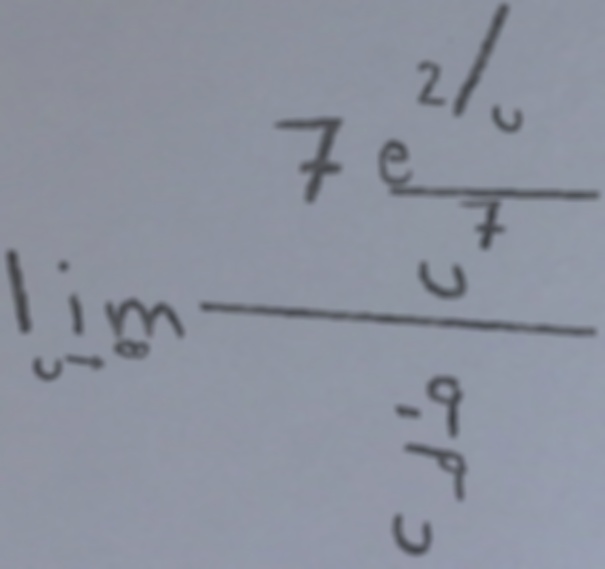 lim_{u→∞} \frac{7 \frac{e^{2/u}}{u^7}}{\frac{-9}{u^9}}